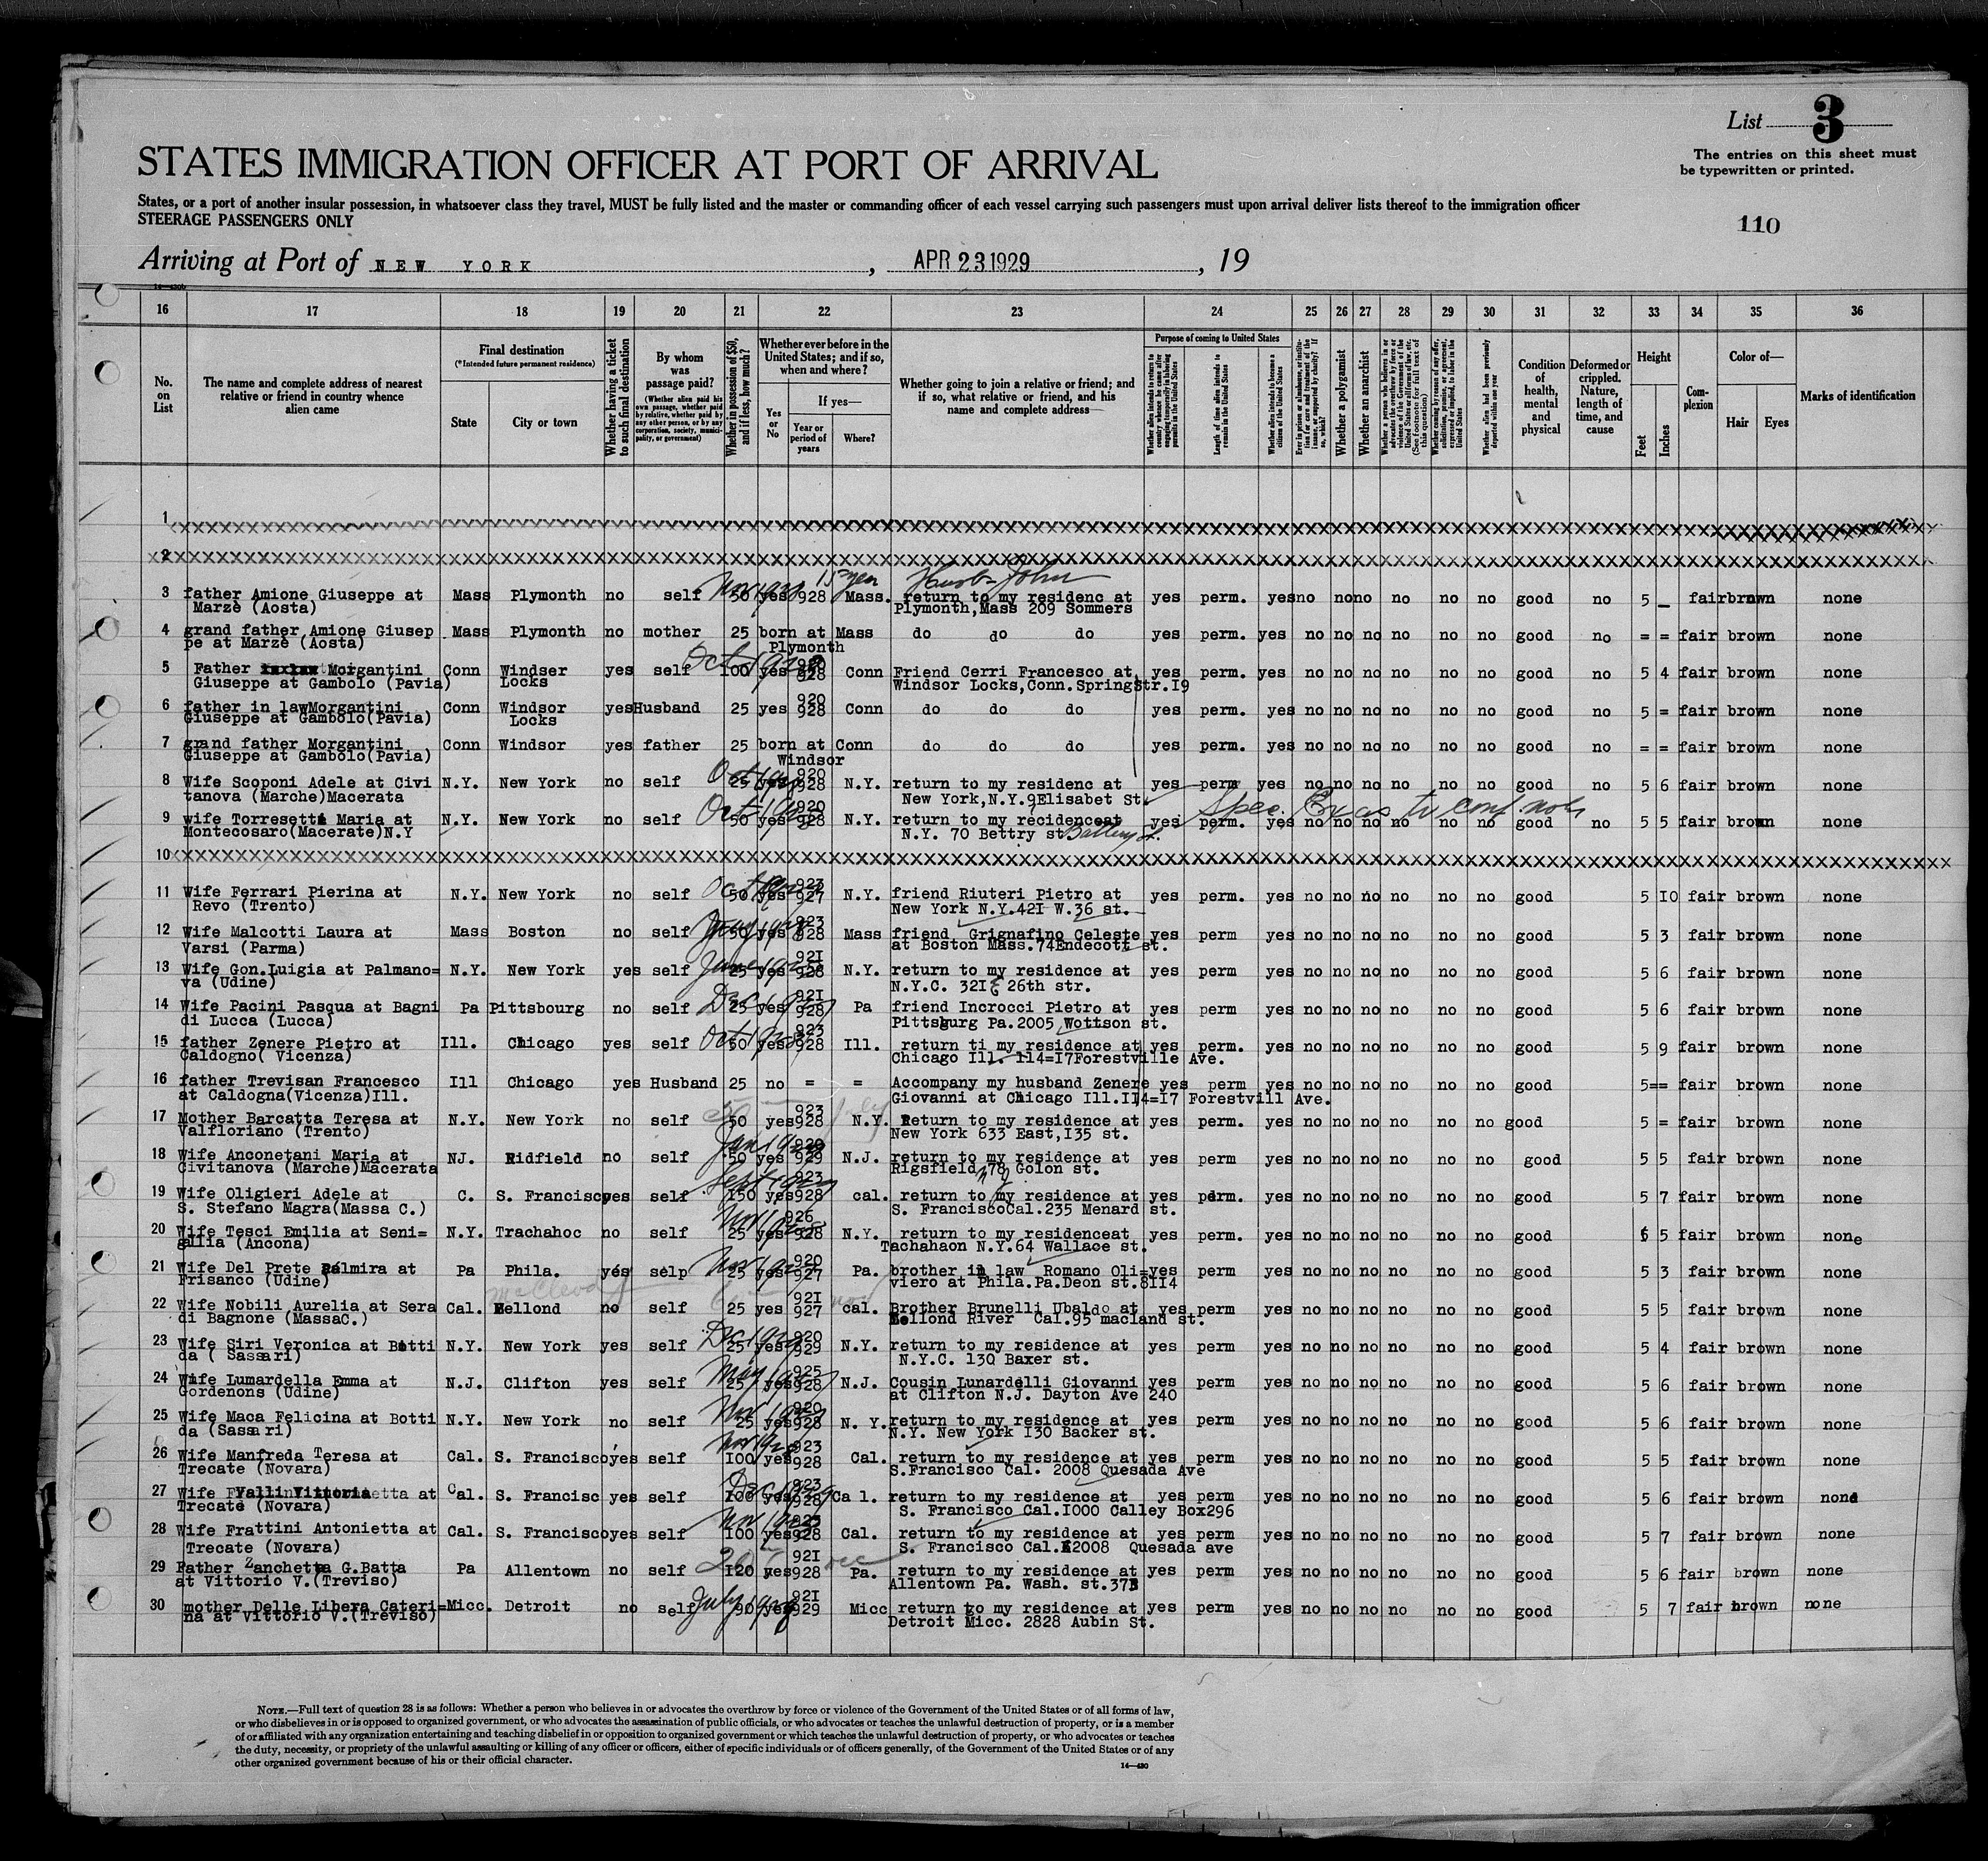 List 3
The entries on this sheet must
be typewritten or printed.
STATES IMMIGRATION OFFICER AT PORT OF ARRIVAL
States, or a port of another insular possession, in whatsoever class they travel, MUST be fully listed and the master or commanding officer of each vessel carrying such passengers must upon arrival deliver lists thereof to the immigration officer
STEERAGE PASSENGERS ONLY
110
Arriving at Port of NEW YORK, APR 23 1929, 19
16 17 18 19 20 21 22 23 24 25 26 27 28 29 30 31 32 33 34 35 36
No. on List
The name and complete address of nearest relative or friend in country whence alien came
Final destination
(*Intended future permanent residence)
State
City or town
Whether having a ticket to such final destination
By whom was passage paid?
(Whether alien paid his own passage, whether paid by relative, whether paid by any other person, or by any corporation, society, municipality, or government)
Whether in possession of $50, and if less, how much?
Whether ever before in the United States; and if so, when and where?
Yes or No
If yes—
Year or period of years
Where?
Whether going to join a relative or friend; and if so, what relative or friend, and his name and complete address
Purpose of coming to United States
Length of time alien intends to remain in the United States
Whether alien intends to become a citizen of the United States
Whether a polygamist
Whether an anarchist
Condition of health, mental and physical
Deformed or crippled. Nature, length of time, and cause
Height
Feet
Inches
Complexion
Color of—
Hair
Eyes
Marks of identification
1
2
15 yen Husb- John
3 father Amione Giuseppe at Mass Plymonth no self 50 yes 928 Mass. return to my residenc at yes perm. yes no no no no no no good no 5 fair brown none
Marzè (Aosta) Plymonth,Mass 209 Sommers
4 grand father Amione Giusep Mass Plymonth no mother 25 born at Mass do do do yes perm. yes no no no no no no good no = = fair brown none
pe at Marzè (Aosta) Plymonth
5 Father Morgantini Conn Windser yes self 100 yes 928 Conn Friend Cerri Francesco at yes perm. yes no no no no no no good no 5 4 fair brown none
Giuseppe at Gambolo (Pavia) Locks Windsor Locks,Conn.SpringStr.I9
6 father in lawMorgantini Conn Windsor yes Husband 25 yes 920 928 Conn do do do yes perm. yes no no no no no no good no 5 = fair brown none
Giuseppe at Gambolo(Pavia) Locks
7 grand father Morgantini Conn Windsor yes father 25 born at Conn do do do yes perm. yes no no no no no no good no = = fair brown none
Giuseppe at Gambolo(Pavia) Windsor
8 Wife Scoponi Adele at Civi N.Y. New York no self 25 yes 920 928 N.Y. return to my residenc at yes perm yes no no no no no no good no 5 6 fair brown none
tanova (Marche)Macerata New York,N.Y.9Elisabet St.
9 wife Torresetti Maria at N.Y. New York no self 50 yes 920 928 N.Y. return to my recidenceat yes perm. yes no no no no no no good no 5 5 fair brown none
Montecosaro(Macerate)N.Y N.Y. 70 Bettry st Battery st.
10
11 Wife Ferrari Pierina at N.Y. New York no self 50 yes 923 927 N.Y. friend Riuteri Pietro at yes perm. yes no no no no no no good 5 IO fair brown none
Revo (Trento) New York N.Y.42I W.36 st.
12 Wife Malcotti Laura at Mass Boston no self 50 yes 923 928 Mass friend Grignafino Celeste yes perm yes no no no no no no good 5 3 fair brown none
Varsi (Parma) at Boston Mass.74Endecott st.
13 Wife Gon.Luigia at Palmano= N.Y. New York yes self 25 yes 92I 928 N.Y. return to my residence at yes perm yes no no no no no no good 5 6 fair brown none
va (Udine) N.Y.C. 32I E 26th str.
14 Wife Pacini Pasqua at Bagni Pa Pittsbourg no self 25 yes 92I 928 Pa friend Incrocci Pietro at yes perm yes no no no no no no good 5 6 fair brown none
di Lucca (Lucca) Pittsburg Pa.2005 Wottson st.
15 father Zenere Pietro at Ill. Chicago yes self 50 yes 923 928 Ill. return ti my residence at yes perm. yes no no no no no no good 5 9 fair brown none
Caldogno( Vicenza) Chicago Ill. 114=I7Forestville Ave.
16 father Trevisan Francesco Ill Chicago yes Husband 25 no = = Accompany my husband Zenere yes perm yes no no no no no no good 5== fair brown none
at Caldogna(Vicenza)Ill. Giovanni at Chicago Ill.II4=I7 Forestvill Ave.
17 Mother Barcatta Teresa at N.Y. New York no self 50 yes 923 928 N.Y. Return to my residence at yes perm. yes no no no no no no good 5 = fair brown none
Valfloriano (Trento) New York 633 East,I35 st.
18 Wife Anconetani Maria at NJ. Ridfield no self 50 yes 920 929 N.J. return to my residence at yes perm yes no no no no no no good 5 5 fair brown none
Civitanova (Marche)Macerata Rigsfield 78 Golon st.
19 Wife Oligieri Adele at C. S. Francisco yes self 150 yes 923 928 cal. return to my residence at yes perm. yes no no no no no no good 5 7 fair brown none
S. Stefano Magra(Massa C.) S. FranciscoCal.235 Menard st.
20 Wife Tesci Emilia at Seni= N.Y. Trachahoc no self 25 yes 926 928 N.Y. return to my residenceat yes perm. yes no no no no no no good 5 fair brown none
gallia (Ancona) Tachahaon N.Y.64 Wallace st.
21 Wife Del Prete Palmira at Pa Phila. yes selp 25 yes 920 927 Pa. brother in law Romano Oli= yes perm yes no no no no no no good 5 3 fair brown none
Frisanco (Udine) viero at Phila.Pa.Deon st.8II4
22 Wife Nobili Aurelia at Sera Cal. Mellond no self 25 yes 92I 927 cal. Brother Brunelli Ubaldo at yes perm yes no no no no no no good 5 5 fair brown none
di Bagnone (MassaC.) Mellond River Cal.95 macland st.
23 Wife Siri Veronica at Botti N.Y. New York yes self 25 yes 920 929 N.Y. return to my residence at yes perm yes no no no no no no good 5 4 fair brown none
da ( Sassari) N.Y.C. 130 Baxer st.
24 Wife Lumardella Emma at N.J. Clifton yes self 25 yes 925 928 N.J. Cousin Lunardelli Giovanni yes perm yes no no no no no no good 5 6 fair brown none
Cordenons (Udine) at Clifton N.J. Dayton Ave 240
25 Wife Maca Felicina at Botti N.Y. New York no self 25 yes 920 928 N. Y. return to my residence at yes perm yes no no no no no no good 5 6 fair brown none
da (Sassari) N.Y. New York I30 Backer st.
26 Wife Manfreda Teresa at Cal. S. Francisco yes self IOO yes 923 928 Cal. return to my residence at yes perm yes no no no no no no good 5 5 fair brown none
Trecate (Novara) S.Francisco Cal. 2008 Quesada Ave
27 Wife Cal. S. Francisc yes self IOO yes 923 928 Ca l. return to my residence at yes perm yes no no no no no no good 5 6 fair brown none
Trecate (Novara) S. Francisco Cal.I000 Calley Box296
28 Wife Frattini Antonietta at Cal. S. Francisco yes self IOO yes 923 928 Cal. return to my residence at yes perm yes no no no no no no good 5 7 fair brown none
Trecate (Novara) S. Francisco Cal. 2008 Quesada ave
29 Father Zanchetta G.Batta Pa Allentown no self I20 yes 92I 928 Pa. return to my residence at yes perm yes no no no no no no good 5 6 fair brown none
at Vittorio V.(Treviso) Allentown Pa. Wash. st.37
30 mother Delle Libera Cateri= Micc. Detroit no self 90 yes 92I 929 Micc return to my residence at yes perm yes no no no no no no good 5 7 fair brown none
na at Vittorio V.(Treviso) Detroit Micc. 2828 Aubin St.
NOTE.—Full text of question 28 is as follows: Whether a person who believes in or advocates the overthrow by force or violence of the Government of the United States or of all forms of law,
or who disbelieves in or is opposed to organized government, or who advocates the assassination of public officials, or who advocates or teaches the unlawful destruction of property, or is a member
of or affiliated with any organization entertaining and teaching disbelief in or opposition to organized government or which teaches the unlawful destruction of property, or who advocates or teaches
the duty, necessity, or propriety of the unlawful assaulting or killing of any officer or officers, either of specific individuals or of officers generally, of the Government of the United States or of any
other organized government because of his or their official character.
14—430